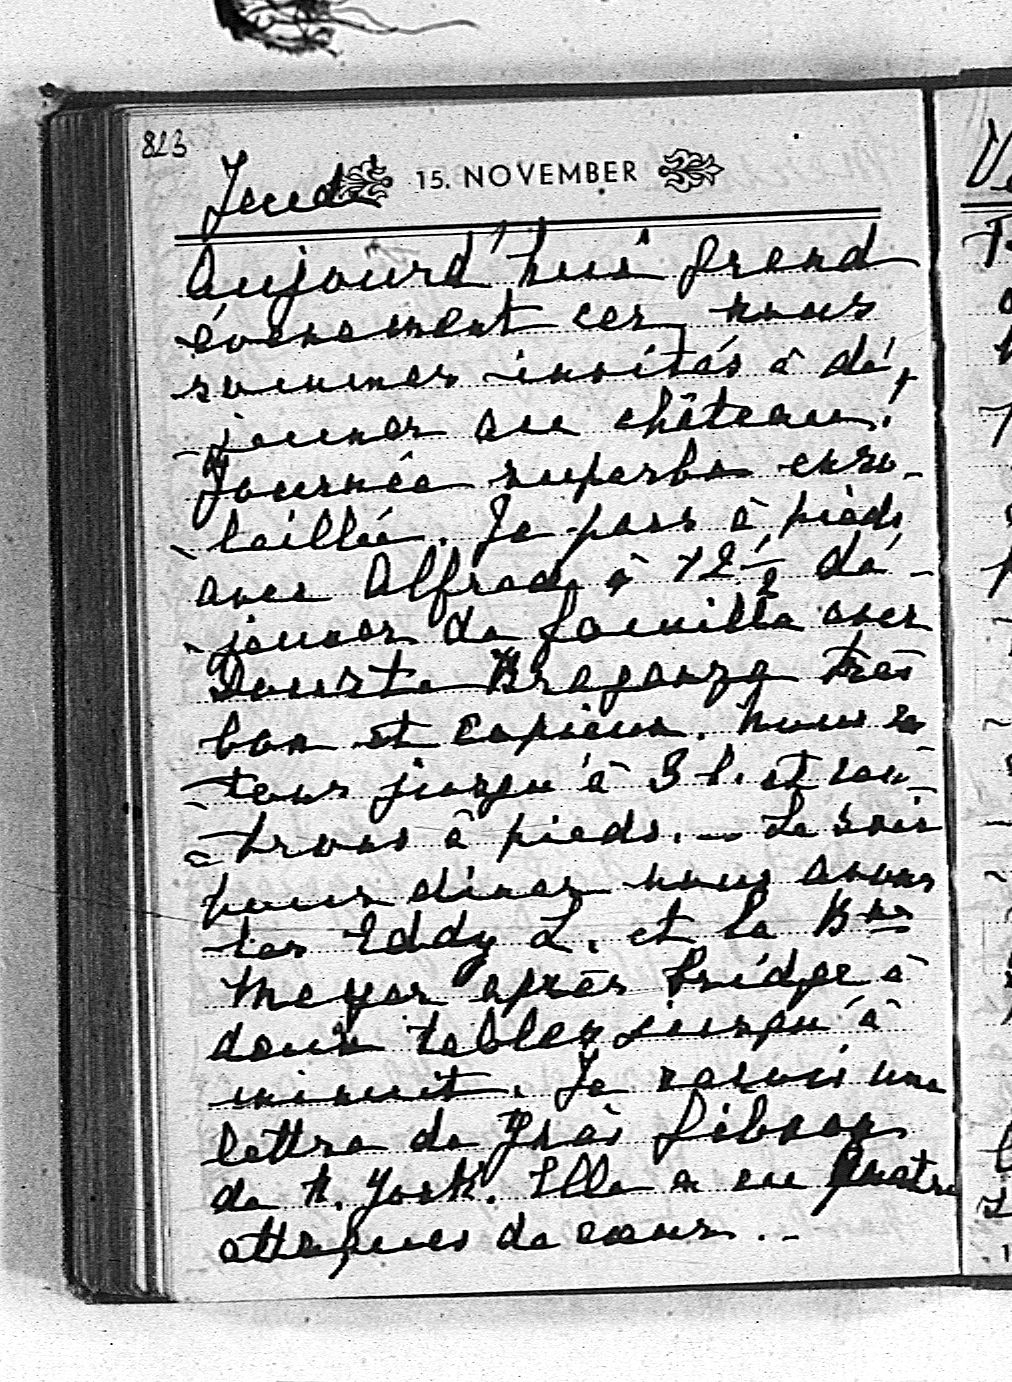 823
Jeudi
15. NOVEMBER
Aujourd'hui grand
évenement car nous
sommes invités à dé-
-jeuner au château!
Journée superbe enso-
-leillée. Je pars à pieds
avec Alfred à 12 1/2 dé-
-jeuner de famille avec
Braganza très
bon et copieux. Nous res-
-tons jusqu'à 3 h. et ren-
-trons à pieds. — Le soir
pour diner nous avons
les Eddy L. et la Bne
Meyer après bridge à
deux tables jusqu'à
minuit. Je reçois une
lettre de Gibson
de N. York. Elle a eu quatre
attaques de cœur. –